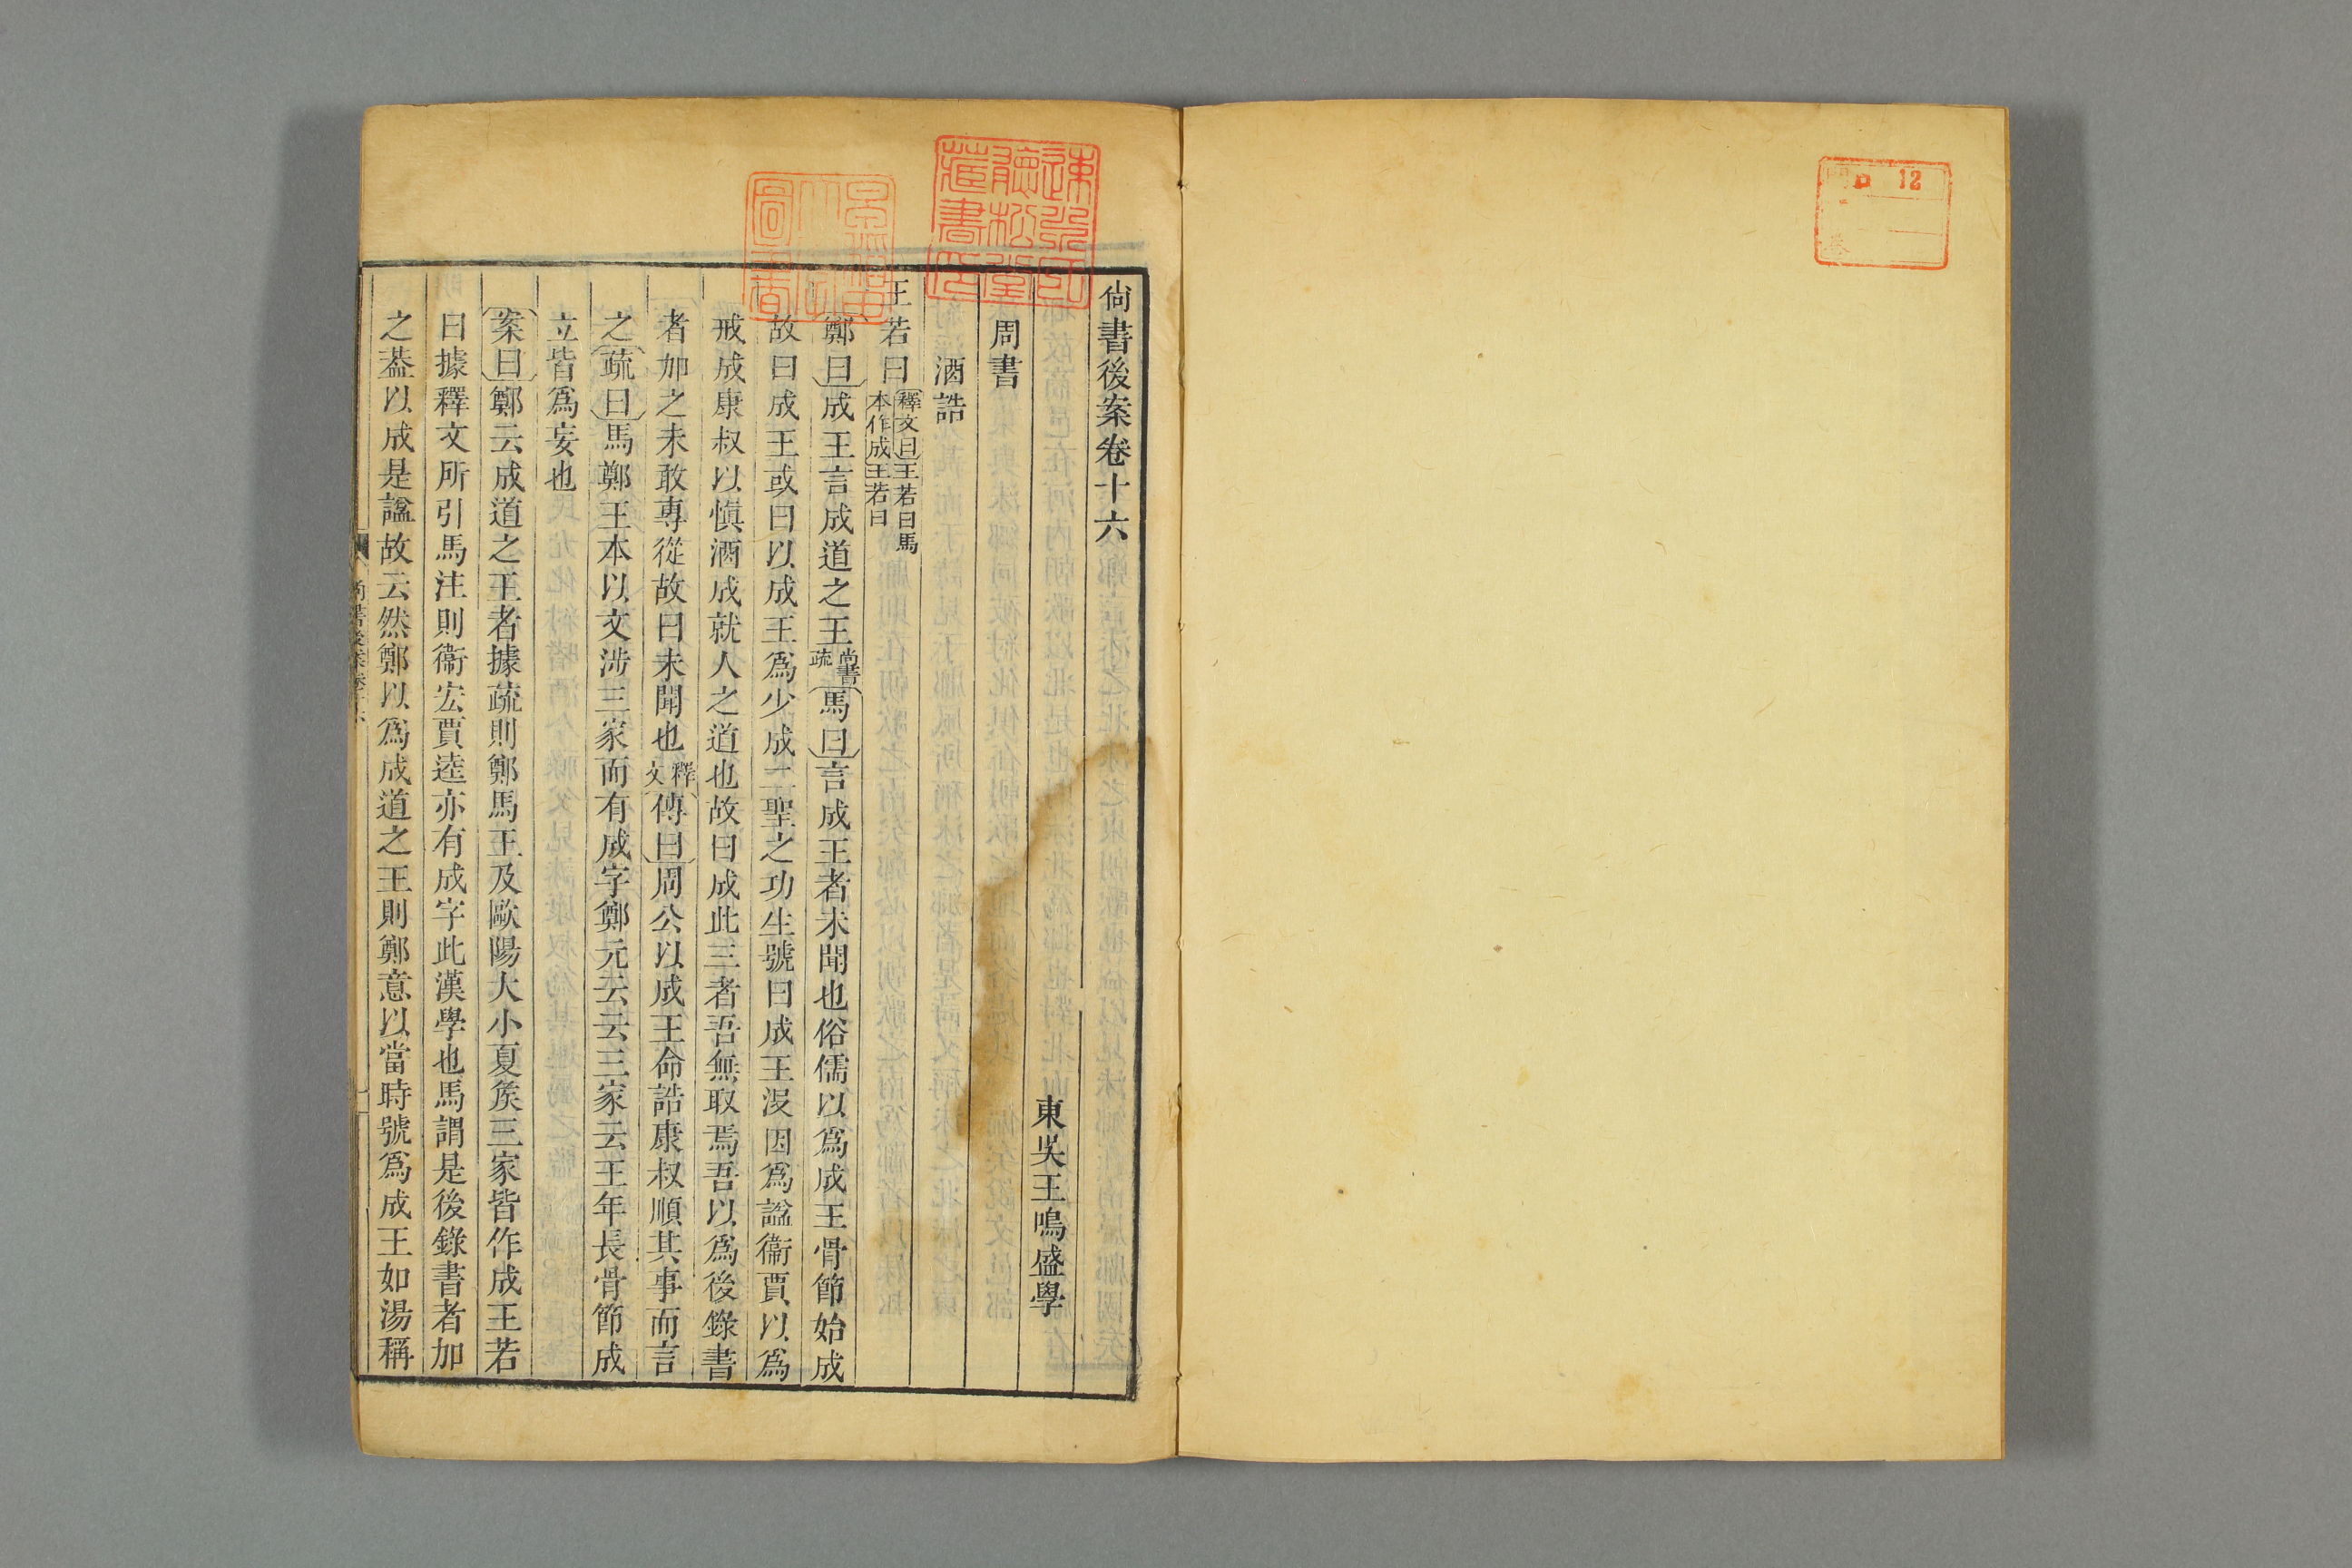 尙書後案卷十六
東吳王鳴盛學
周書
酒誥
王若曰釋文曰王若曰馬本作成王若曰
鄭曰成王言成道之王尚書疏馬曰言成王者未聞也俗儒以爲成王骨節始成
故曰成王或曰以成王爲少成二聖之功生號曰成王沒因爲諡衞賈以爲
戒成康叔以愼酒成就人之道也故曰成此三者吾無取焉吾以爲後錄書
者加之未敢專從故曰未聞也釋文傳曰周公以成王命誥康叔順其事而言
之疏曰馬鄭王本以文涉三家而有成字鄭元云云三家云王年長骨節成
立皆爲妄也
案曰鄭云成道之王者據疏則鄭馬王及歐陽大小夏矦三家皆作成王若
曰據釋文所引馬注則衞宏賈逵亦有成字此漢學也馬謂是後錄書者加
之葢以成是諡故云然鄭以爲成道之王則鄭意以當時號爲成王如湯稱
12